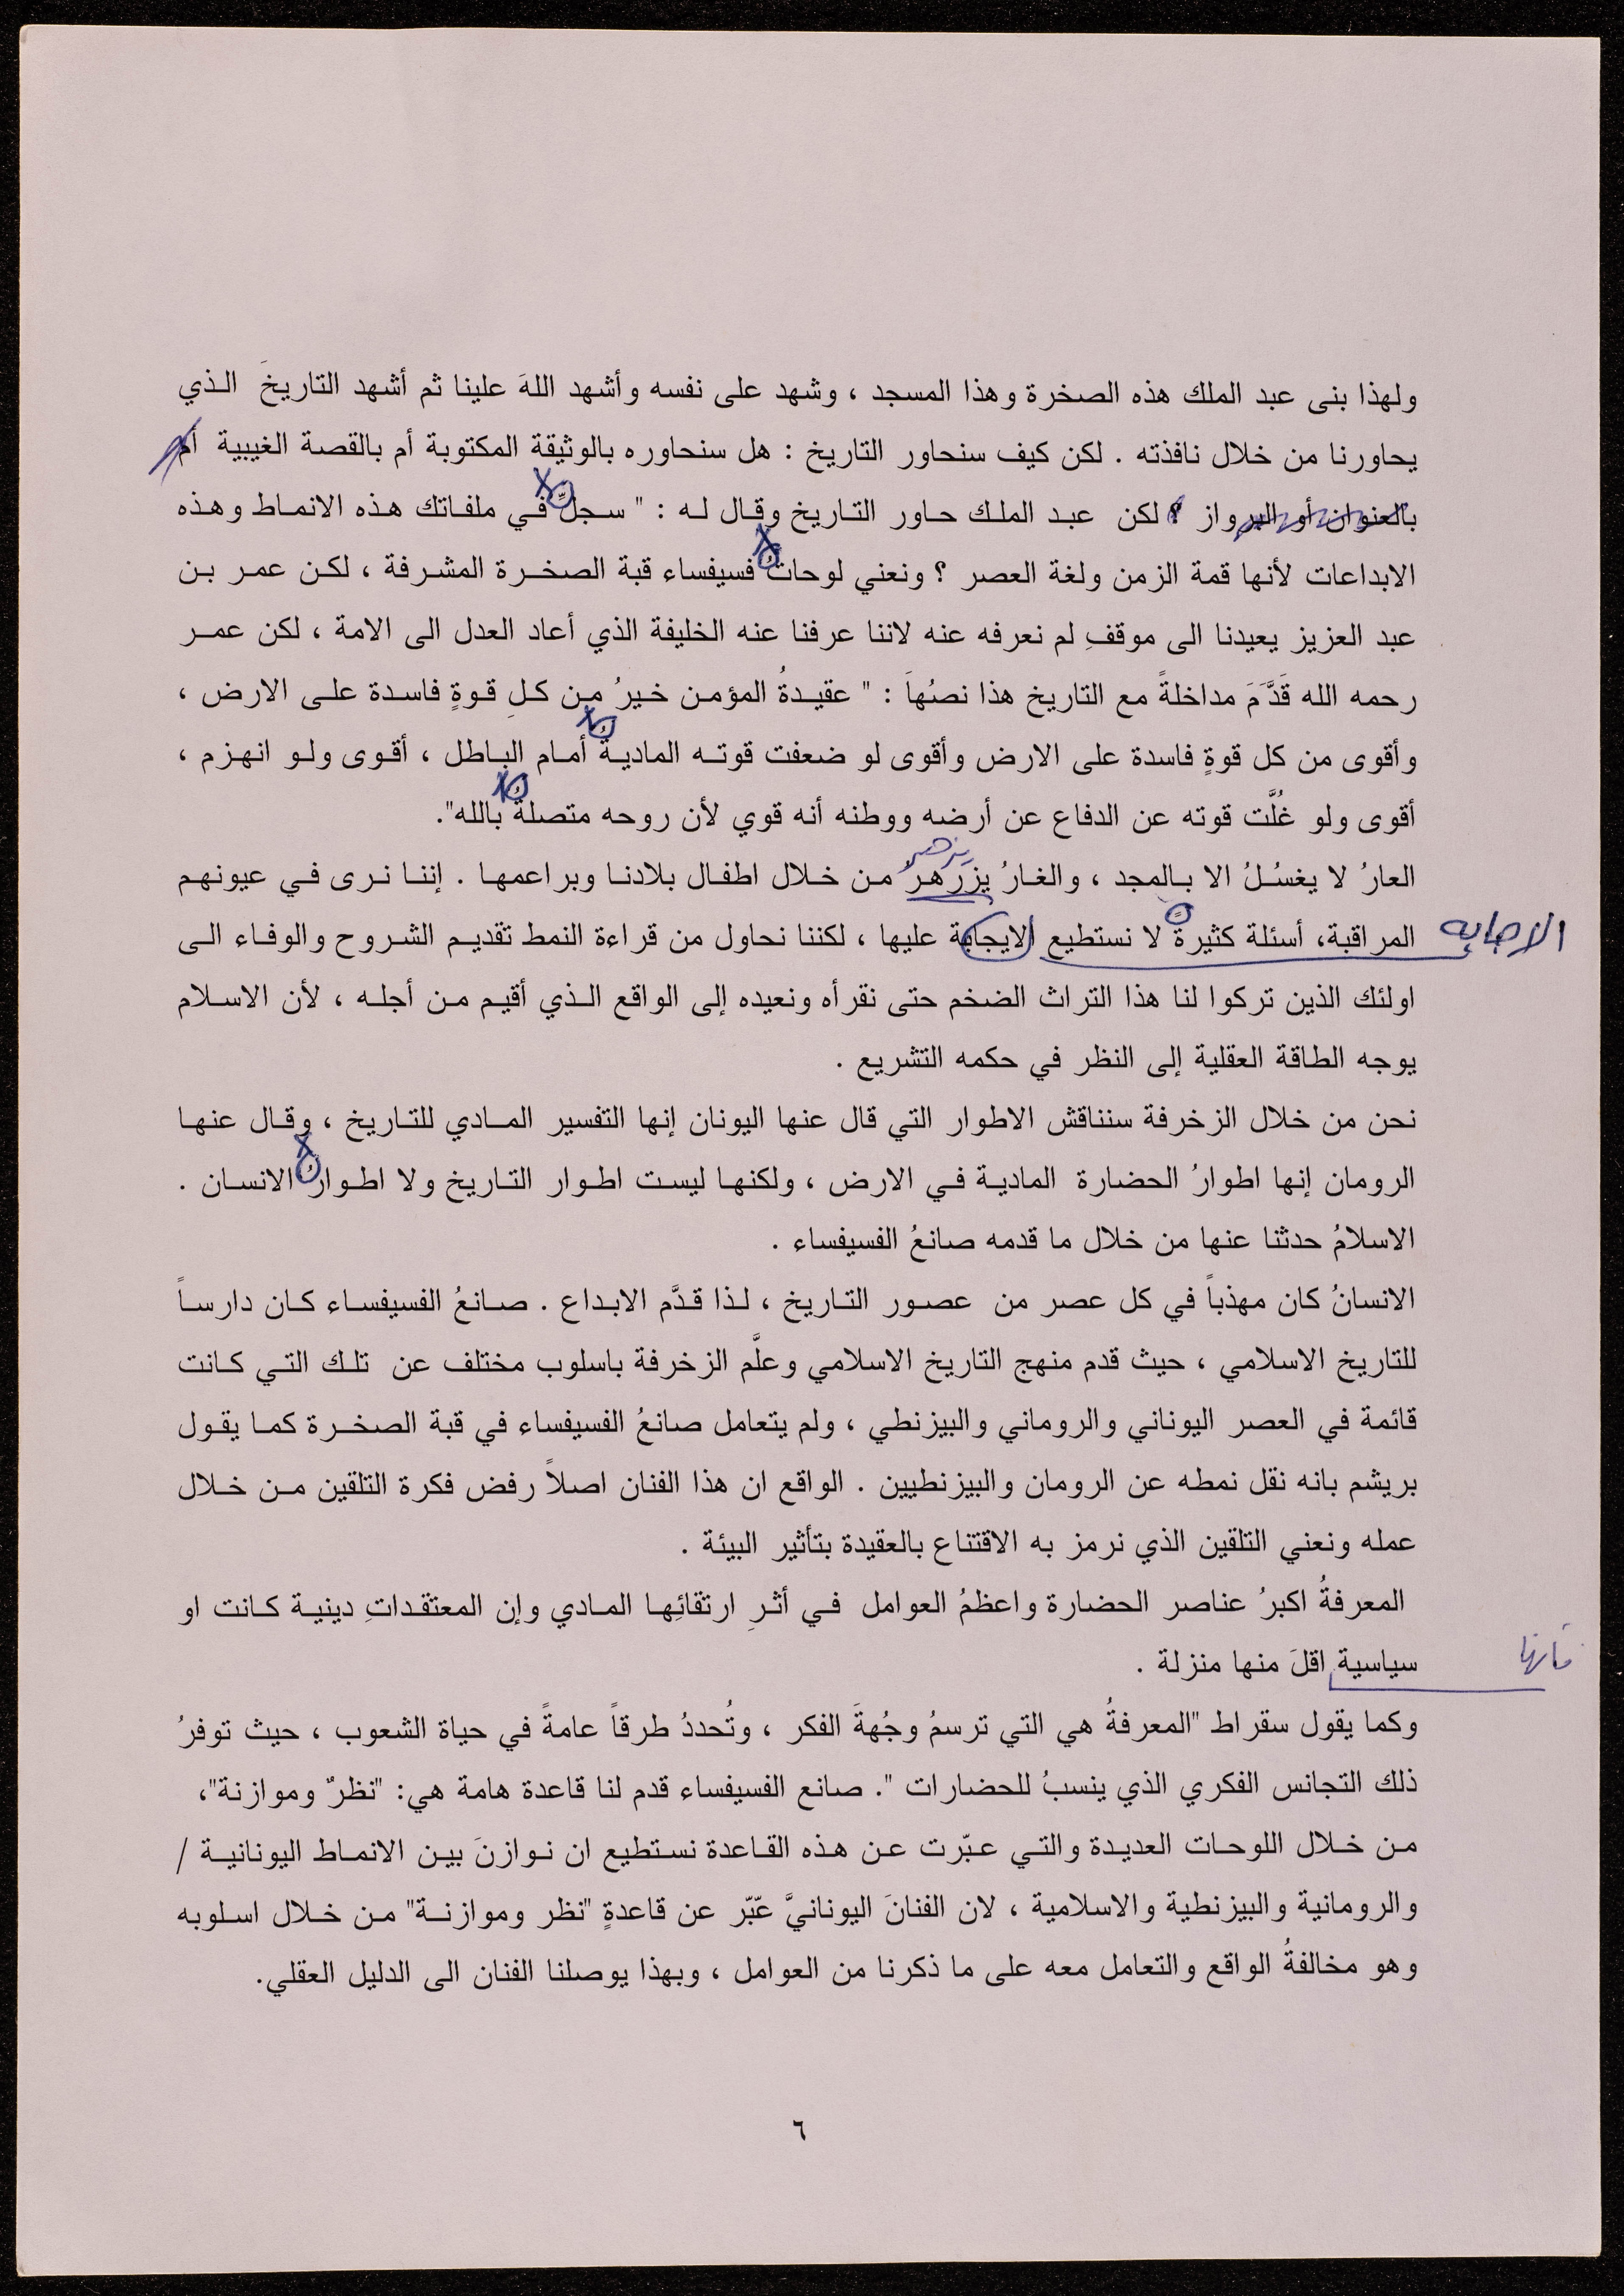 ولهذا بنى عبد الملك هذه الصخرة وهذا المسجد ، وشهد على نفسه وأشهد اللهَ علينا ثم أشهد التاريخَ الذي
يحاورنا من خلال نافذته . لكن كيف سنحاور التاريخ : هل سنحاوره بالوثيقة المكتوبة أم بالقصة الغيبية أم
بالعنوان أو البرواز ؟ لكن عبد الملك حاور التاريخ وقال له : " سجلِّ في ملفاتك هذه الانماط وهذه
الابداعات لأنها قمة الزمن ولغة العصر ؟ ونعني لوحاتُ فسيفساء قبة الصخرة المشرفة ، لكن عمر بن
عبد العزيز يعيدنا الى موقفِ لم نعرفه عنه لاننا عرفنا عنه الخليفة الذي أعاد العدل الى الامة ، لكن عمر
رحمه الله قَدَّمَ مداخلةً مع التاريخ هذا نصُهاَ : " عقيدةُ المؤمن خيرُ من كلِ قوةٍ فاسدة على الارض ،
وأقوى من كل قوةٍ فاسدة على الارض وأقوى لو ضعفت قوته الماديةُ أمام الباطل ، أقوى ولو انهزم ،
أقوى ولو غُلَّت قوته عن الدفاع عن أرضه ووطنه أنه قوي لأن روحه متصلةُ بالله".
يزهر
العارُ لا يغسُلُ الا بالمجد ، والغارُ يزرهرُ من خلال اطفال بلادنا وبراعمها . إننا نرى في عيونهم
المراقبة، أسئلة كثيرةً لا نستطيع الايجابة عليها ، لكننا نحاول من قراءة النمط تقديم الشروح والوفاء الى
الاجابه
اولئك الذين تركوا لنا هذا التراث الضخم حتى نقرأه ونعيده إلى الواقع الذي أقيم من أجله ، لأن الاسلام
يوجه الطاقة العقلية إلى النظر في حكمه التشريع .
نحن من خلال الزخرفة سنناقش الاطوار التي قال عنها اليونان إنها التفسير المادي للتاريخ ، وقال عنها
الرومان إنها اطوارُ الحضارة المادية في الارض ، ولكنها ليست اطوار التاريخ ولا اطوارُ الانسان .
الاسلامُ حدثنا عنها من خلال ما قدمه صانعُ الفسيفساء .
الانسانُ كان مهذباً في كل عصر من عصور التاريخ ، لذا قدَّم الابداع . صانعُ الفسيفساء كان دارساً
للتاريخ الاسلامي ، حيث قدم منهج التاريخ الاسلامي وعلَّم الزخرفة باسلوب مختلف عن تلك التي كانت
قائمة في العصر اليوناني والروماني والبيزنطي ، ولم يتعامل صانعُ الفسيفساء في قبة الصخرة كما يقول
بريشم بانه نقل نمطه عن الرومان والبيزنطيين . الواقع ان هذا الفنان اصلاً رفض فكرة التلقين من خلال
عمله ونعني التلقين الذي نرمز به الاقتناع بالعقيدة بتأثير البيئة .
المعرفةُ اكبرُ عناصر الحضارة واعظمُ العوامل في أثرِ ارتقائِها المادي وإن المعتقداتِ دينية كانت او
سياسية اقلَ منها منزلة .
فانها
وكما يقول سقراط "المعرفةُ هي التي ترسمُ وجُهةَ الفكر ، وتُحددُ طرقاً عامةً في حياة الشعوب ، حيث توفرُ
ذلك التجانس الفكري الذي ينسبُ للحضارات ". صانع الفسيفساء قدم لنا قاعدة هامة هي: "نظرٌ وموازنة"،
من خلال اللوحات العديدة والتي عبّرت عن هذه القاعدة نستطيع ان نوازنَ بين الانماط اليونانية /
والرومانية والبيزنطية والاسلامية ، لان الفنانَ اليونانيَّ عبّر عن قاعدةٍ "نظر وموازنة" من خلال اسلوبه
وهو مخالفةُ الواقع والتعامل معه على ما ذكرنا من العوامل ، وبهذا يوصلنا الفنان الى الدليل العقلي.
٦